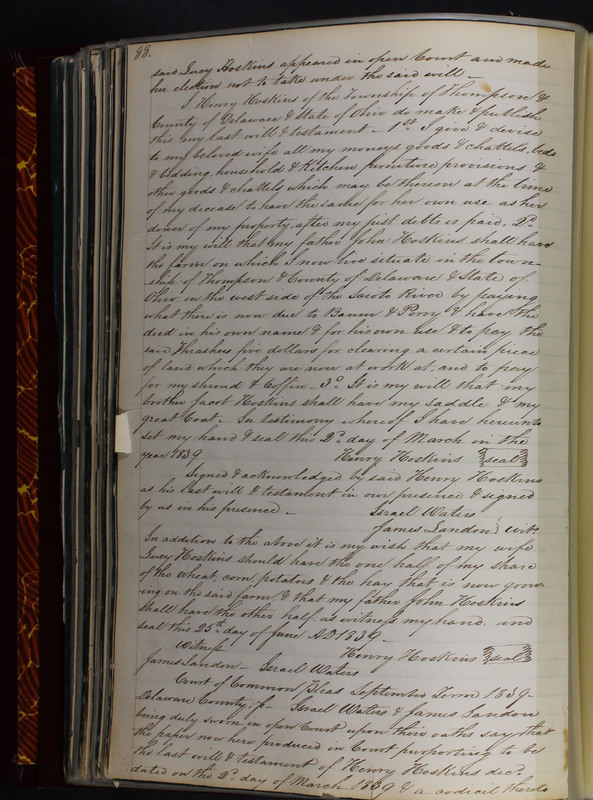 88.
said Lucy Hoskins appeared in open Court and made
her election not to take under the said will –
I Henry Hoskins of the Township of Thompson &
County of Delaware & State of Ohio do make & publish
this my last will & testament – 1st I give & devise
to my beloved wife all my moneys goods & chattels, beds
& bedding, household & Kitchen furniture provisions &
other goods & chattels which may be thereon at the time
of my decease to have the same for her own use as her
dower of my property, after my just debts is paid, 2d
It is my will that my father John Hoskins shall have
the farm on which I now live situate in the town-
ship of Thompson & County of Delaware & State of
Ohio, on the west side of the Scioto River by paying
what there is now due to Baum & Perry & have the
deed in his own name & for his own use & to pay the
said Thrashers five dollars for clearing a certain piece
of land which they are now at work at, and to pay
for my shroud & Coffin – 3d It is my will that my
brother Jacob Hoskins shall have my saddle & my
great Coat. In testimony whereof I have hereunto
set my hand & seal this 2d day of March in the
year 1839. Henry Hoskins seal
Signed & acknowledged by said Henry Hoskins
as his last will & testament in our presence & signed
by us in his presence – Israel Waters
James Landon wits
In addition to the above it is my wish that my wife
Lucy Hoskins should have the one half of my share
of the wheat, corn, potatoes & the hay that is now grow-
ing on the said farm, & that my father John Hoskins
shall have the other half. as witness my hand and
seal this 25th day of June AD 1839 –
Witness Henry Hoskins seal
James Landon – Israel Waters
Court of Common Pleas September Term 1839 –
Delaware County, ss – Israel Waters & James Landon
being duly sworn in open Court upon there oaths say that
the paper now here produced in Court purporting to be
the last will & testament of Henry Hoskins decd
dated on the 2d day of March 1839 & a codicil thereto